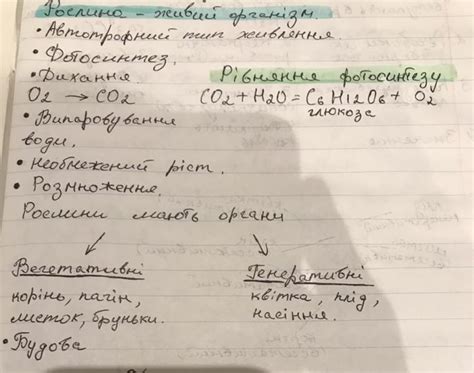 Рослина – живий організм.
• Автотрофний тип живлення.
• Фотосинтез.
• Дихання
Рівняння фотосинтезу
O2 → CO2
CO2 + H2O = C6H12O6 + O2
глюкоза
• Випаровування
води.
• Необмежений ріст.
• Розмноження.
Рослини мають органи
Вегетативні
корінь, пагін,
листок, бруньки.
Генеративні
квітка, плід,
насіння.
• Будова